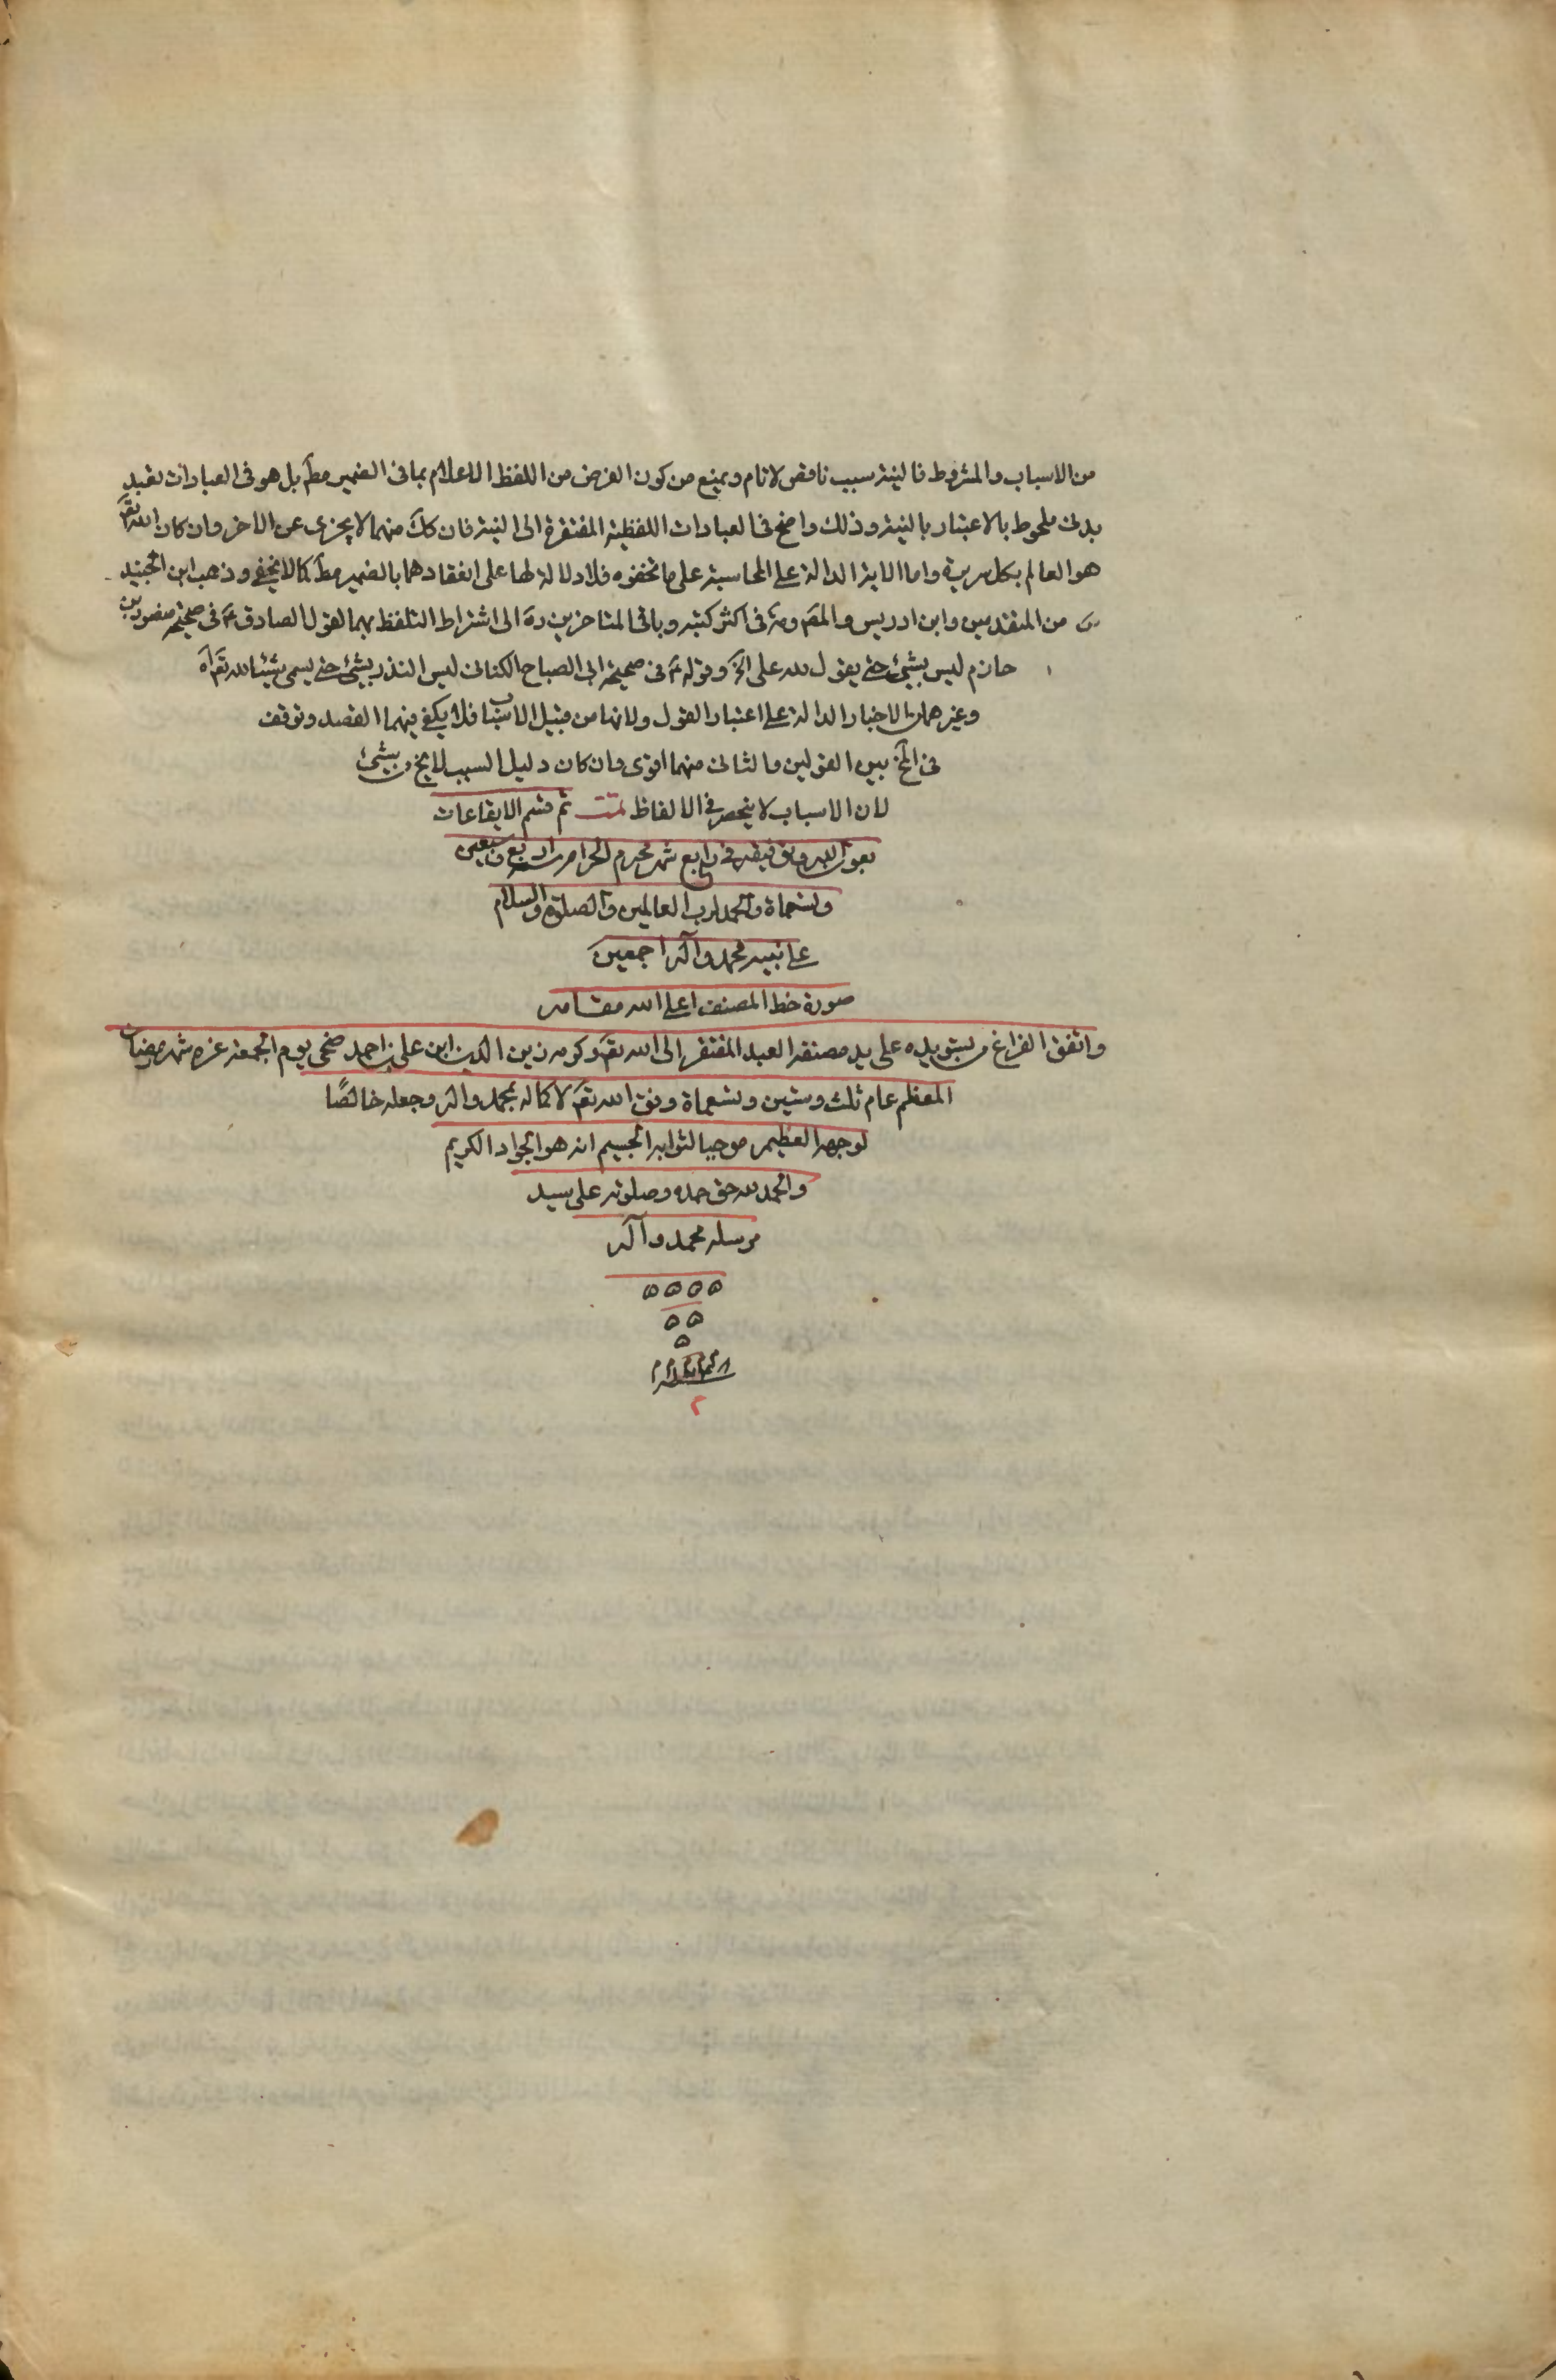 من الاسباب والمشروط فالنية سبب ناقص لاتام ويمنع من كون الغرض من اللفظ الاعلام بما فى الضمير مط بل هو فى العبادات تعبد
بدنى ملحوظ بالاعتبار بالنية وذلك واضح فى العبادات اللفظية المفتقرة الى النية فان كلا منهما لايجزى عن الاخر وان كان الله تع
هو العالم بكل سريرة واما الاية الدالة على المحاسبة على ما تخفوه فلا دلالة لها على انعقادهما بالضمير مط كما لا يخفى وذهب ابن الجنيد
من المتقدمين وابن ادريس والمص ره فى اكثر كتبه وباقى المتاخرين ره الى اشتراط التلفظ بهما لقول الصادق ع فى صحيحة منصور بن
حازم ليس بشئ حتى يقول لله على الخ وقوله ع فى صحيحة ابى الصباح الكنانى ليس النذر بشئ حتى يسمى شيئا لله تع اه
وغيرهما من الاخبار الدالة على اعتبار القول ولانهما من قبيل الاسباب فلا يكفى فيهما القصد وتوقف
فى المخ بين القولين والثانى منهما اقوى وان كان دليل السبب لايخ من شئ
لان الاسباب لا ينحصر فى الالفاظ تمت تم قسم الايقاعات
بعون الله وتوفيقه فى رابع شهر محرم الحرام سنه اربع وسبعين
وتسعماة والحمد لرب العالمين والصلوة والسلام
على نبيه محمد وآله اجمعين
صورة خط المصنف اعلى الله مقامه
واتفق الفراغ من تسويده على يد مصنفه العبد المفتقر الى الله تع وكرمه زين الدين ابن على بن احمد ضحى يوم الجمعة غره شهر رمضان
المعظم عام ثلث وستين وتسعماة وفق الله تع لاكماله بمحمد واله وجعله خالصًا
لوجهه العظيم موجبا لثوابه الجسيم انه هو الجواد الكريم
والحمد لله حق حمده وصلوته على سيد
مرسله محمد وآله
ه ه ه ه
ه ه
ه